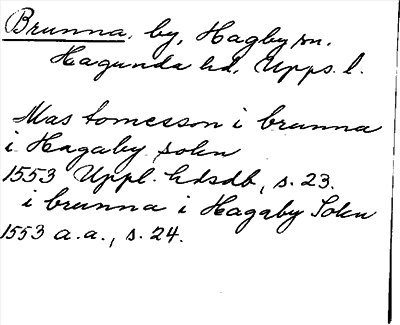 Brunna, by, Hagby sn.
Hagunda hd, Upps. l.
Mas tomesson i brunna
i Hagaby sokn
1553 Uppl. hdsdb, s. 23.
i brunna i Hagaby Sokn
1553 a.a., s. 24.